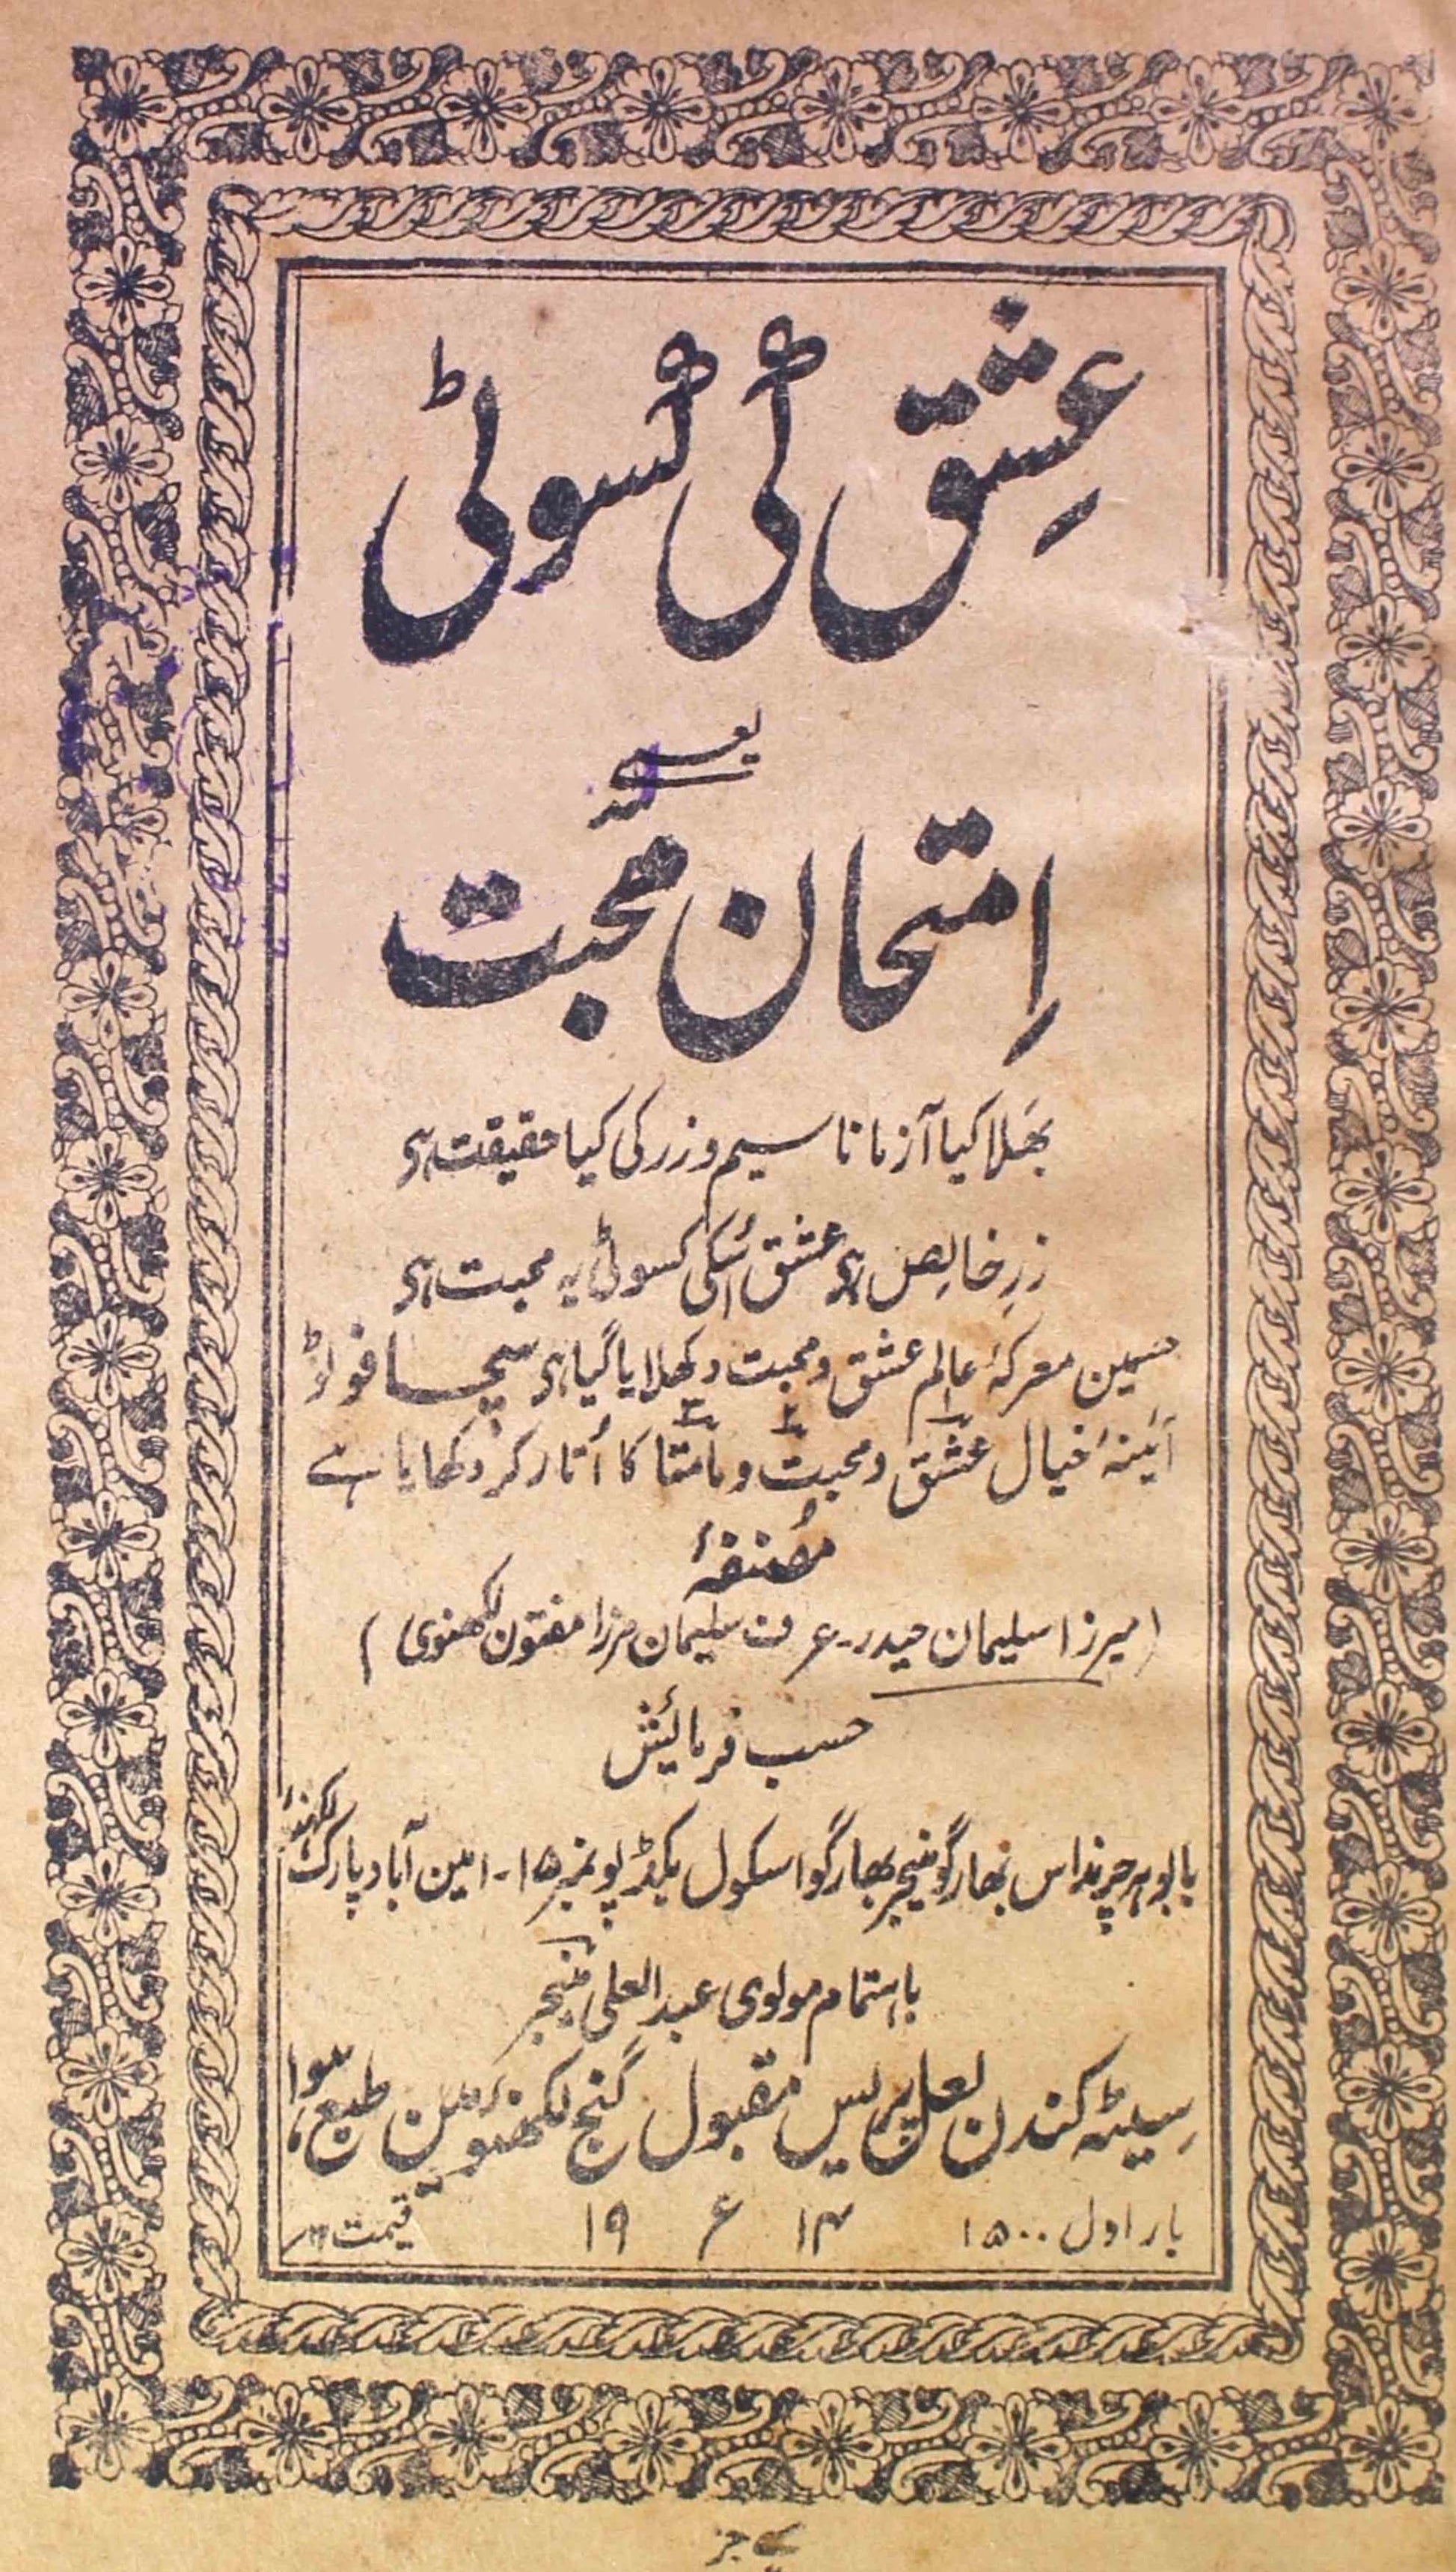 عِشق کی کسوٹی
یعنے
اِمتحان محبت
بھَلا کیا آزمانا سیم و زر کی کیا حقیقت ہی
زرِ خالِص ہی عشق اُسکی کسوٹی یہ محبت ہی
جسمین معرکۂ عالم عشق و محبت دکھلایا گیا ہی سچا فوٹو
آئینۂ خیال عشق و محبت و مامتا کا اُتار کر دکھایا ہے
مُصنفۂ
(میرزا سلیمان حیدر۔ عرف سلیمان مرزا مفتون لکھنوی)
حسب فرمائش
بابو ہرچرنداس بھارگو منیجر بھارگو اسکول بکڈپو نمبر ۱۵۔ امین آباد پارک لکھنؤ
باہتمام مولوی عبد العلی منیجر
سیٹھ کندن لعل پریس مقبول گنج لکھنؤ مین طبع ہوا
بار اول ۱۵۰۰ ۱۹۱۴ء قیمت
جز